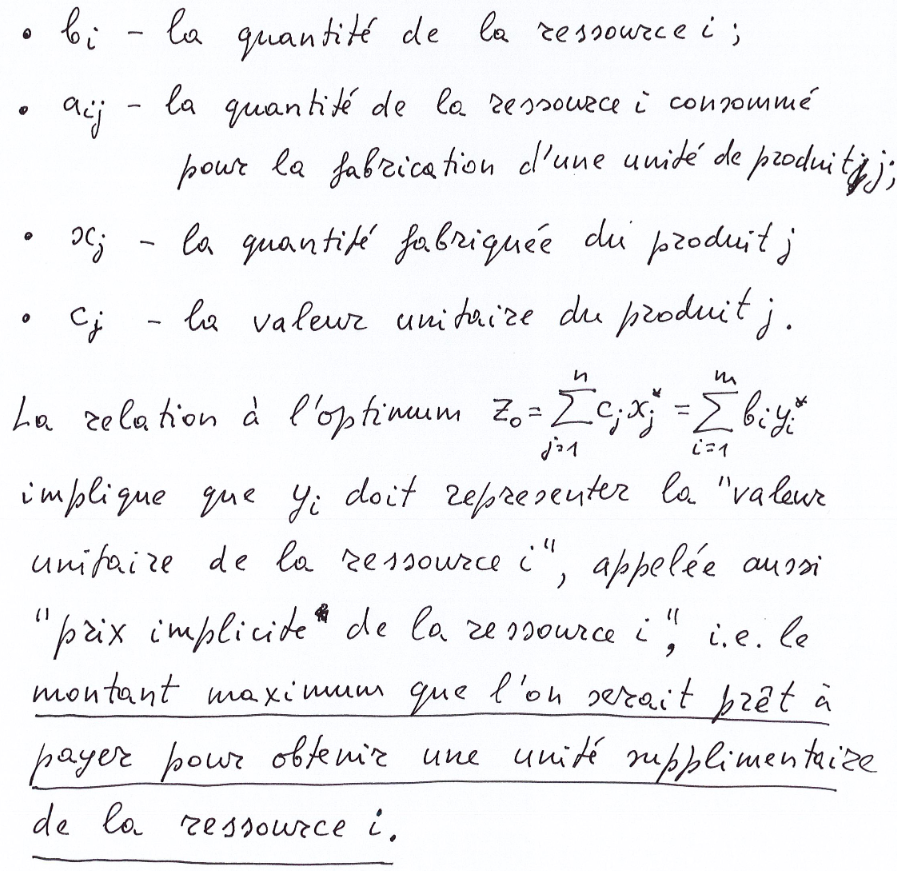 • bᵢ - la quantité de la ressource i;
• aᵢⱼ - la quantité de la ressource i consommé
pour la fabrication d'une unité de produit j;
• xⱼ - la quantité fabriquée du produit j
• cⱼ - la valeur unitaire du produit j.
La relation à l'optimum z₀ = ∑ⱼ₌₁ⁿ cⱼxⱼ* = ∑ᵢ₌₁ᵐ bᵢyᵢ*
implique que yᵢ doit representer la "valeur
unitaire de la ressource i", appelée aussi
"prix implicite de la ressource i", i.e. le
montant maximum que l'on serait prêt à
payer pour obtenir une unité supplimentaire
de la ressource i.